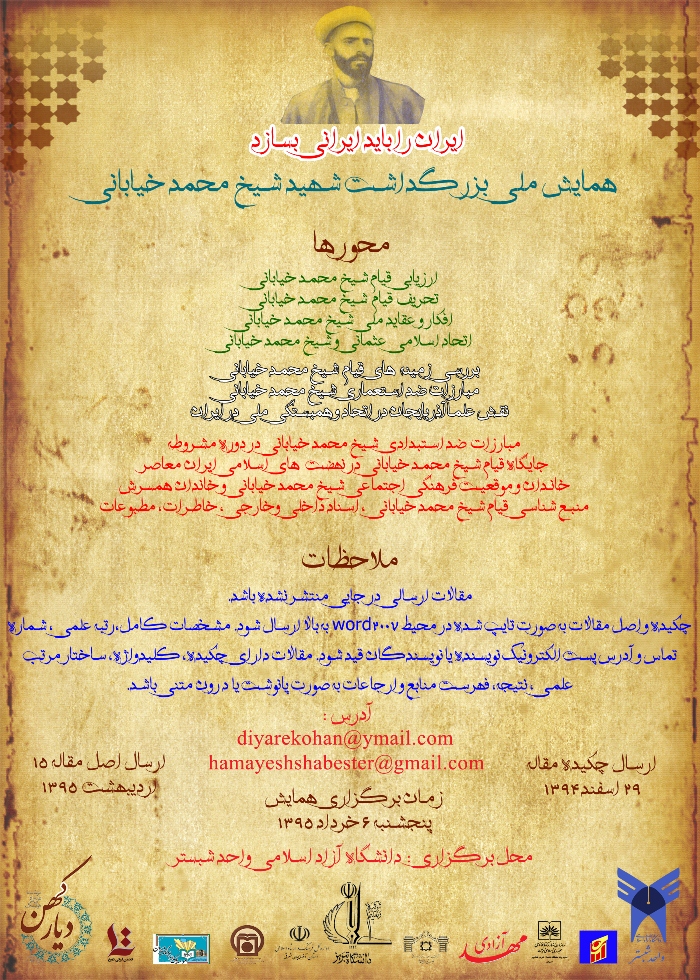 ایران را باید ایرانی بسازد
همایش ملی بزرگداشت شهید شیخ محمد خیابانی
محورها
ارزیابی قیام شیخ محمد خیابانی
تحریف قیام شیخ محمد خیابانی
افکار و عقاید ملی شیخ محمد خیابانی
اتحاد اسلامی عثمانی و شیخ محمد خیابانی
بررسی زمینه های قیام شیخ محمد خیابانی
مبارزات ضد استعماری شیخ محمد خیابانی
نقش علما آذربایجان در اتحاد و همبستگی ملی در ایران
مبارزات ضد استبدادی شیخ محمد خیابانی در دوره مشروطه
جایگاه قیام شیخ محمد خیابانی در نهضت های اسلامی ایران معاصر
خاندان و موقعیت فرهنگی اجتماعی شیخ محمد خیابانی و خاندان همسرش
منبع شناسی قیام شیخ محمد خیابانی ، اسناد داخلی و خارجی ، خاطرات، مطبوعات
ملاحظات
مقالات ارسالی در جایی منتشر نشده باشد.
چکیده و اصل مقالات به صورت تایپ شده در محیط word۲۰۰۷ به بالا ارسال شود. مشخصات کامل،رتبه علمی ، شماره
تماس و آدرس پست الکترونیک نویسنده یا نویسندگان قید شود. مقالات دارای چکیده، کلیدواژه، ساختار مرتب
علمی ، نتیجه، فهرست منابع و ارجاعات به صورت پانوشت یا درون متنی باشد.
آدرس :
diyarekohan@ymail.com
hamayeshshabester@gmail.com
ارسال چکیده مقاله
۲۹ اسفند ۱۳۹۴
ارسال اصل مقاله ۱۵
اردیبهشت ۱۳۹۵
زمان برگزاری همایش
پنجشنبه ۶ خرداد ۱۳۹۵
محل برگزاری : دانشگاه آزاد اسلامی واحد شبستر
واحد شبستر
مهد آزادی
دانشگاه تبریز
دیار کهن